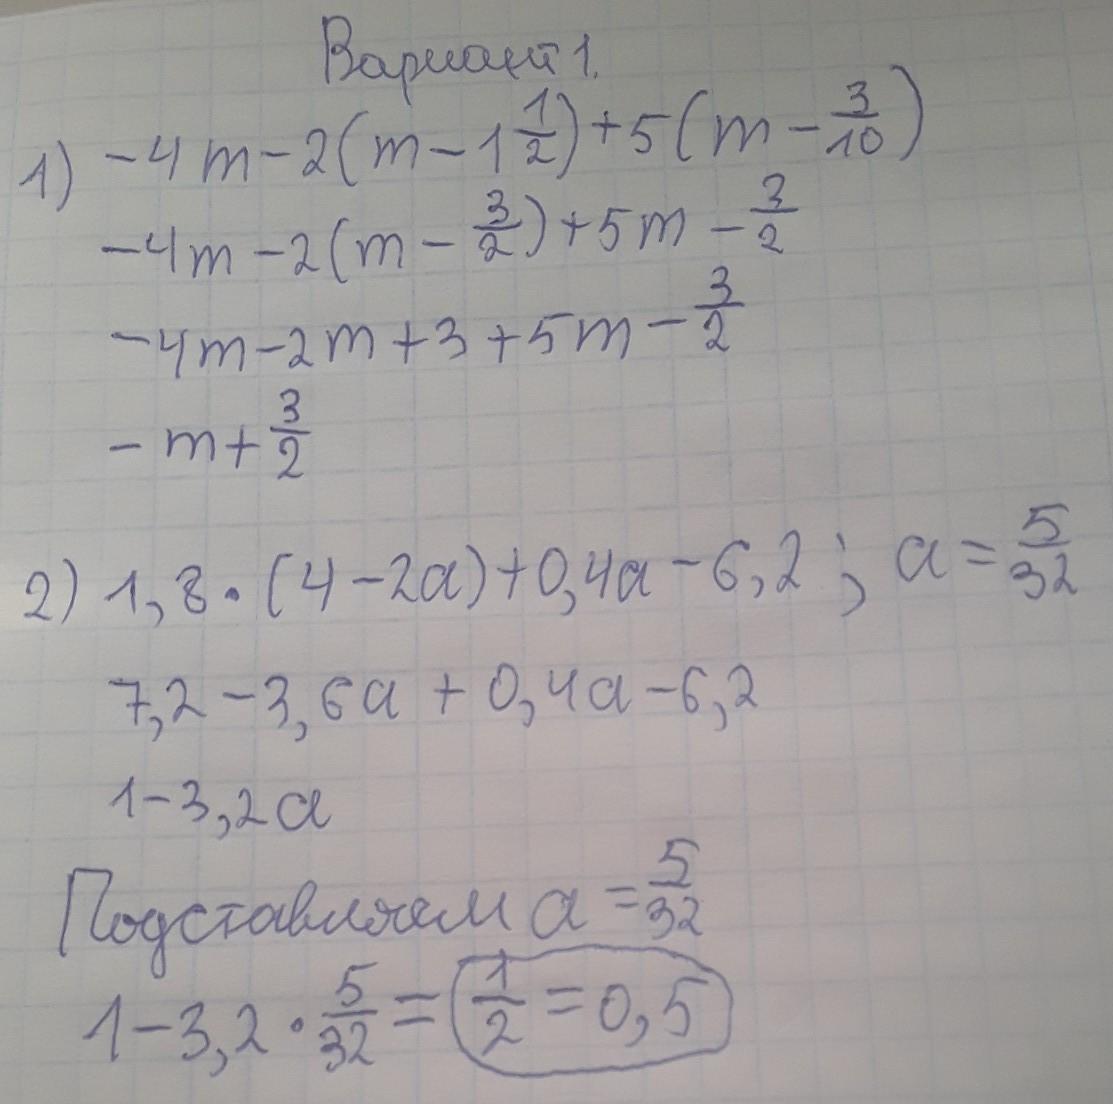 Вариант 1.
1) -4m-2(m-1 1/2)+5(m-3/10)
-4m-2(m-3/2)+5m-3/2
-4m-2m+3+5m-3/2
-m+3/2
2) 1,8·(4-2a)+0,4a-6,2; a=5/32
7,2-3,6a+0,4a-6,2
1-3,2a
Подставляем a=5/32
1-3,2·5/32=1/2=0,5